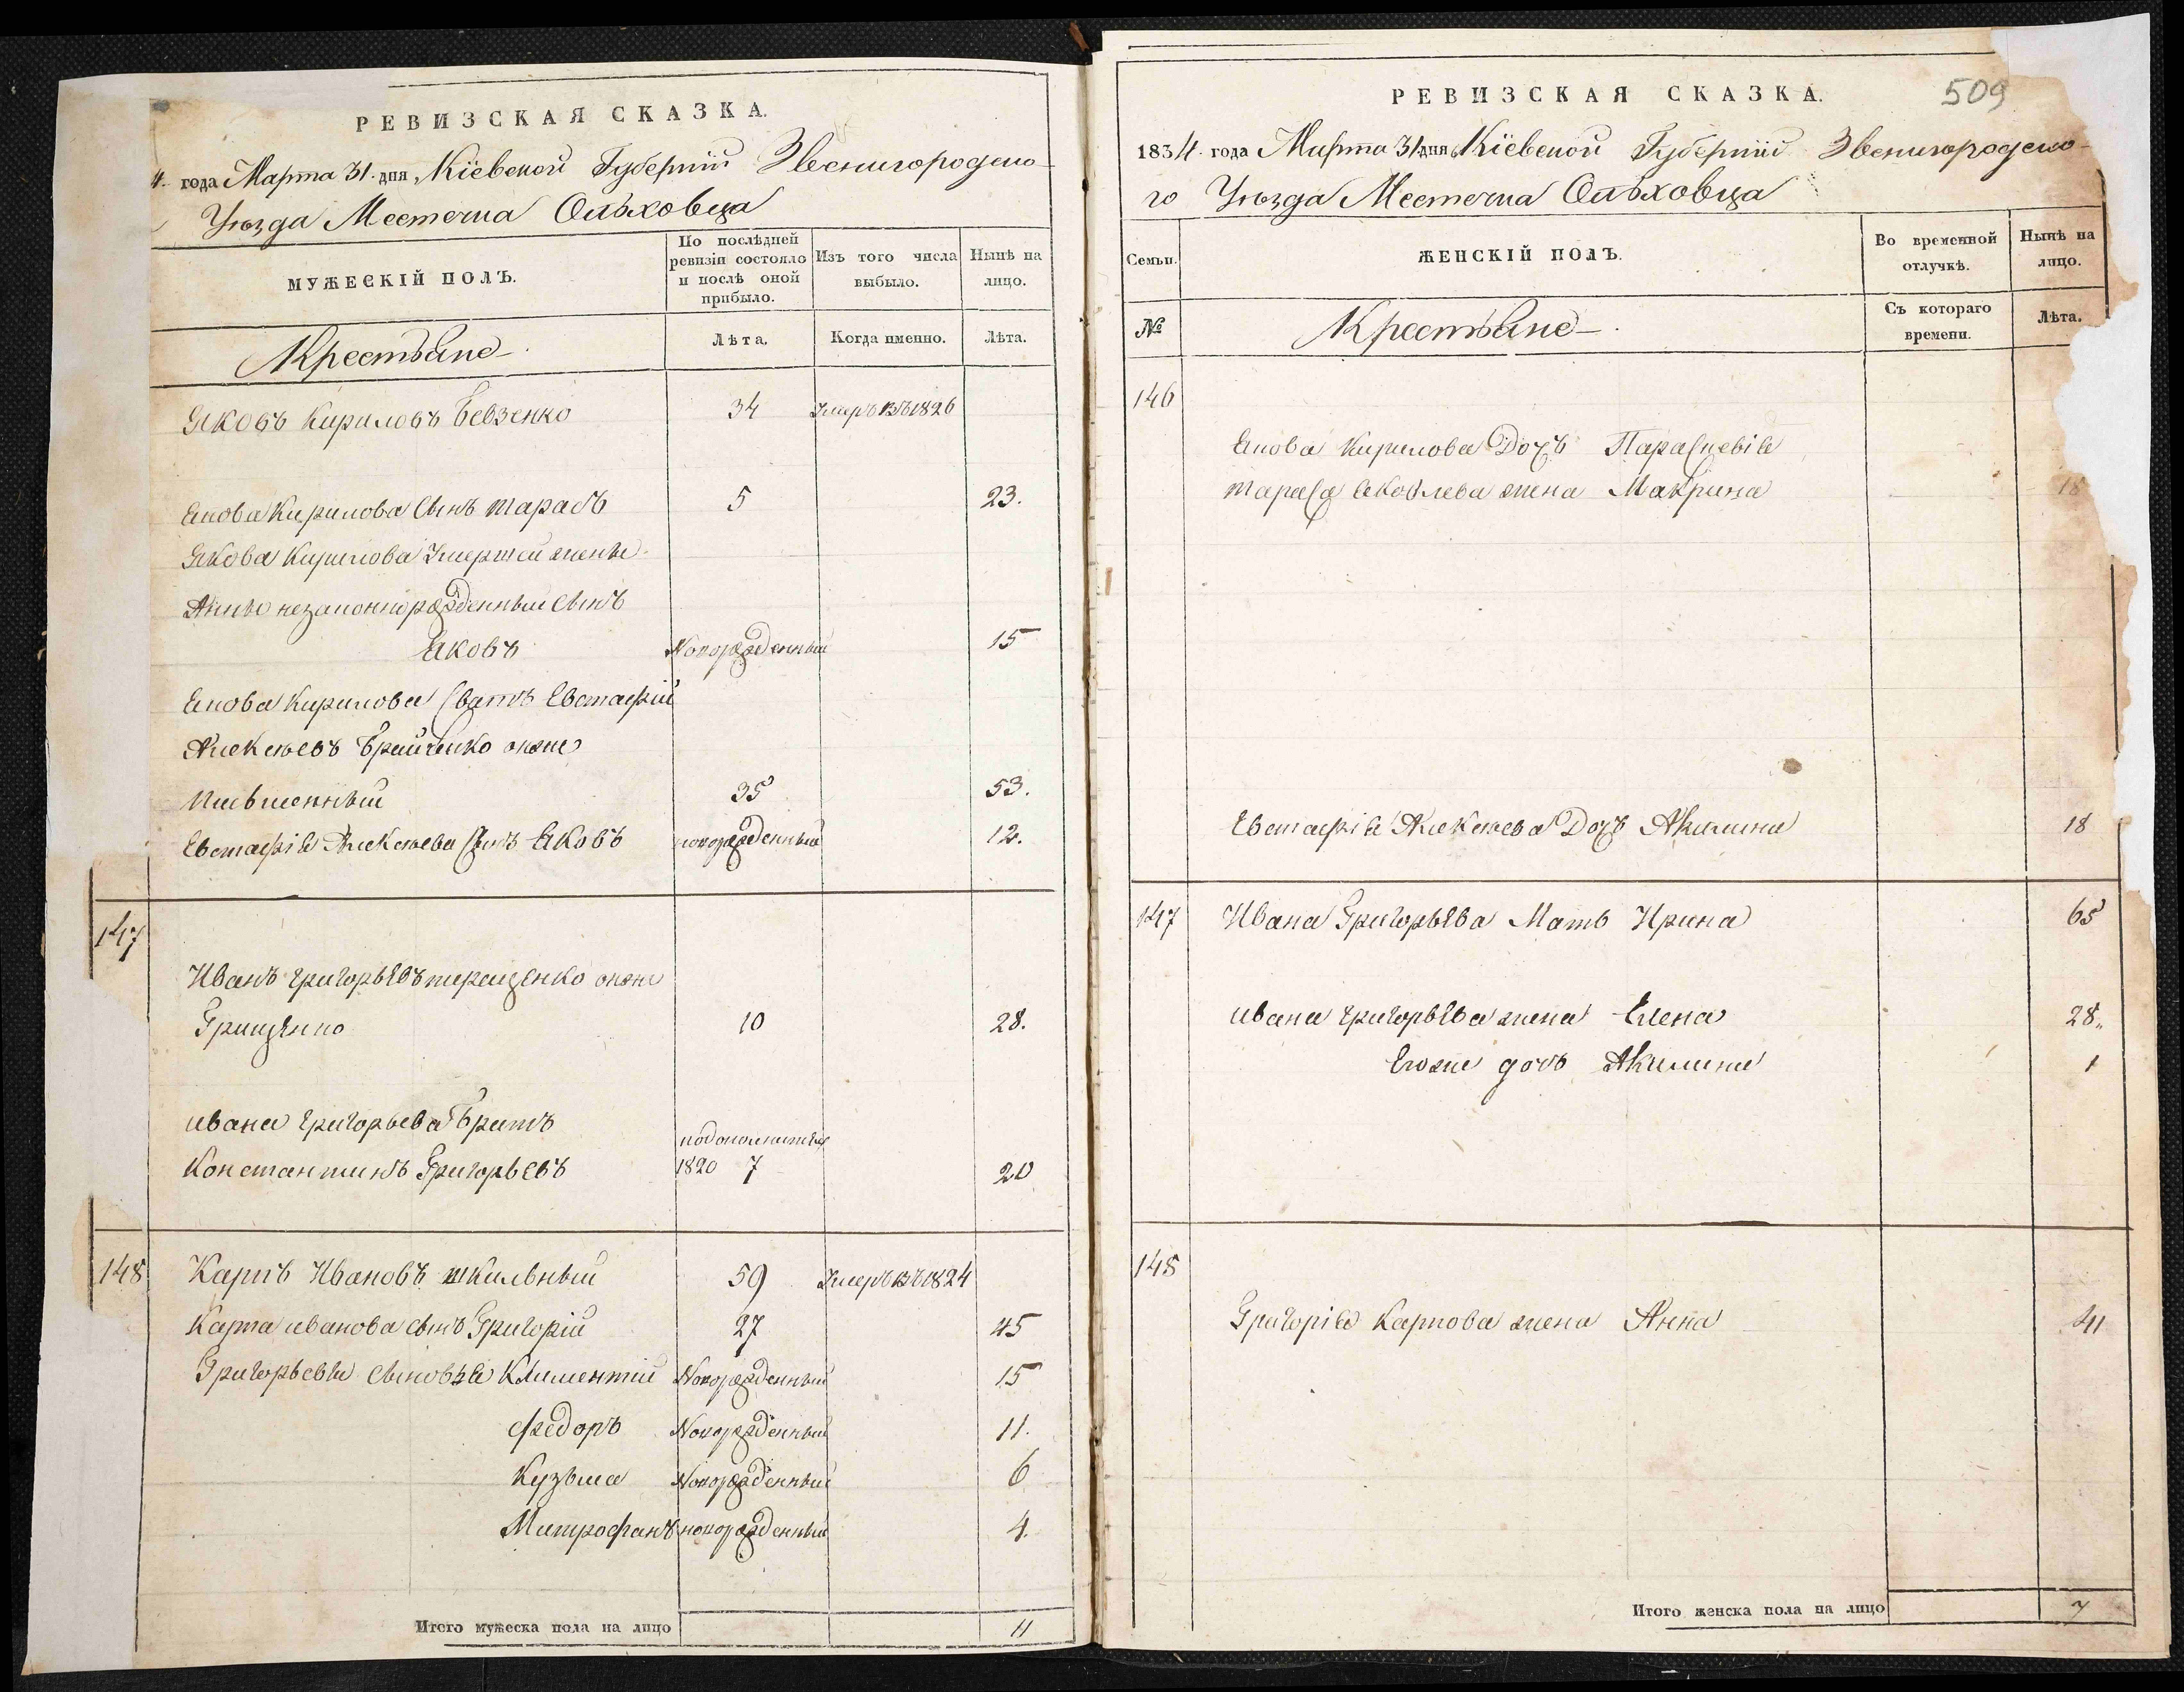 РЕВИЗСКАЯ СКАЗКА.
4. года Марта 31. дня, Кіевской Губерніи Звенигородско-
Уѣзда Местечка Ольховца
МУЖЕСКІЙ ПОЛЪ.
По послѣдней ревизіи состояло и послѣ оной прибыло.
Изъ того числа выбыло.
Нынѣ на лицо.
Крестьяне
Лѣта.
Когда именно.
Лѣта.
Яковъ Кириловъ Бевзенко 34 Умеръ въ 1826
Якова Кирилова Сынъ тарасъ 5 23.
Якова Кирилова жены
Анны незаконнорожденный Сынъ
Яковъ Новорожденный 15
Якова Кирилова Сватъ Евстафій
Алексѣевъ онже
35 53.
Евстафія Алексѣева Сынъ Яковъ новорожденный 12.
147
Иванъ григорьевъ терещенко онже
Грищенко 10 28.
ивана григорьева Братъ
Константинъ Григорьевъ 1820 7 20
148 Карпъ Ивановъ шкильный 59 Умеръ въ 1824
Карпа иванова сынъ Григорій 27 45
Григорьевы Сыновья Климентій Новорожденный 15
федоръ Новорожденный 11.
Кузьма Новорожденный 6
Митрофанъ новорожденный 4.
Итого мужеска пола на лицо 11
509
РЕВИЗСКАЯ СКАЗКА.
1834. года Марта 31 дня Кіевской Губерніи Звенигородско-
го Уѣзда Местечка Ольховца
Семьи.
ЖЕНСКІЙ ПОЛЪ.
Во временной отлучкѣ.
Нынѣ на лицо.
№
Крестьяне
Съ котораго времени.
Лѣта.
146
Якова Кирилова Дочъ Параскевія
тараса Яковлева жена Макрина 18
Евстафія Алексѣева Дочъ Акилина 18
147 Ивана Григорьева Мать Ирина 65
ивана григорьева жена Елена 28.
Егоже дочь Акилина 1
148
Григорія Карпова жена Анна 41
Итого женска пола на лицо 7